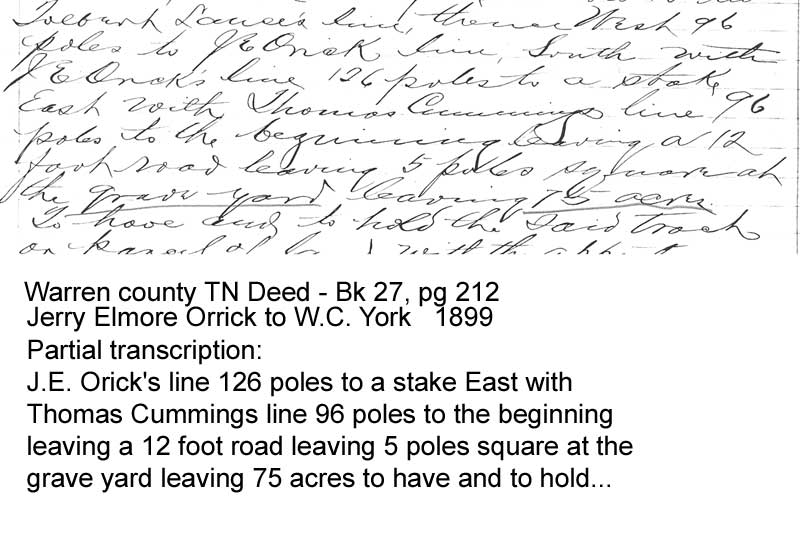 line, thence West 96
poles to J E Orick line, South with
J E Orick's line 126 poles to a stake
East with Thomas Cummings line 96
poles to the beginning leaving a 12
foot road leaving 5 poles square at
the grave yard leaving 75 acres.
To have and to hold the said track
or
Warren county TN Deed - Bk 27, pg 212
Jerry Elmore Orrick to W.C. York 1899
Partial transcription:
J.E. Orick's line 126 poles to a stake East with
Thomas Cummings line 96 poles to the beginning
leaving a 12 foot road leaving 5 poles square at the
grave yard leaving 75 acres to have and to hold...